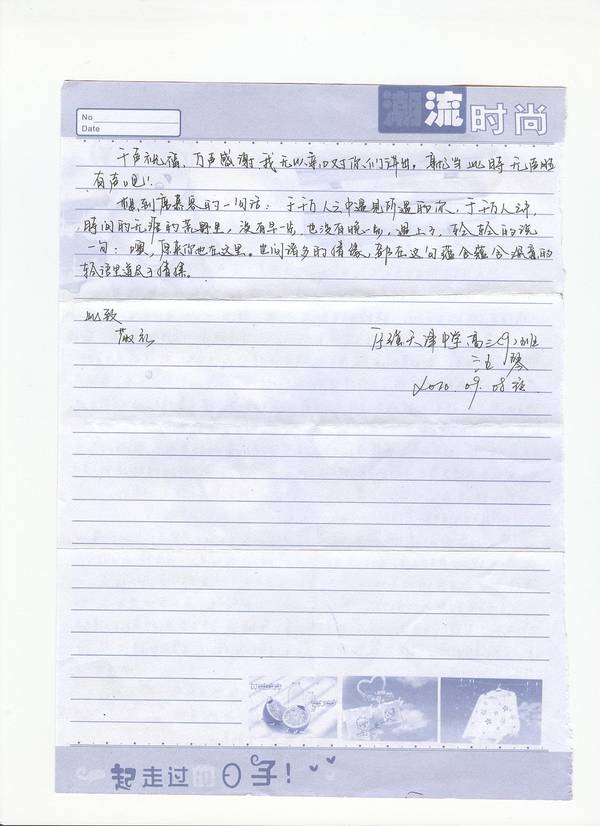 潮流时尚
No
Date
千声祝福，万声感谢我无以亲口对你们讲出。就当此时无声胜
有声吧！
想到席慕蓉的一句话：于千万人之中遇见所遇的你，于千万人之中，
时间的无涯的荒野里，没有早一步，也没有晚一步，遇上了，轻轻的说
一句：噢，原来你也在这里。世间诸多的情缘，都在这句蕴含蕴含深意的
轻语里道尽了情缘。
此致
敬礼
天津中学高三(9)班
2010.09.08
一起走过的日子！